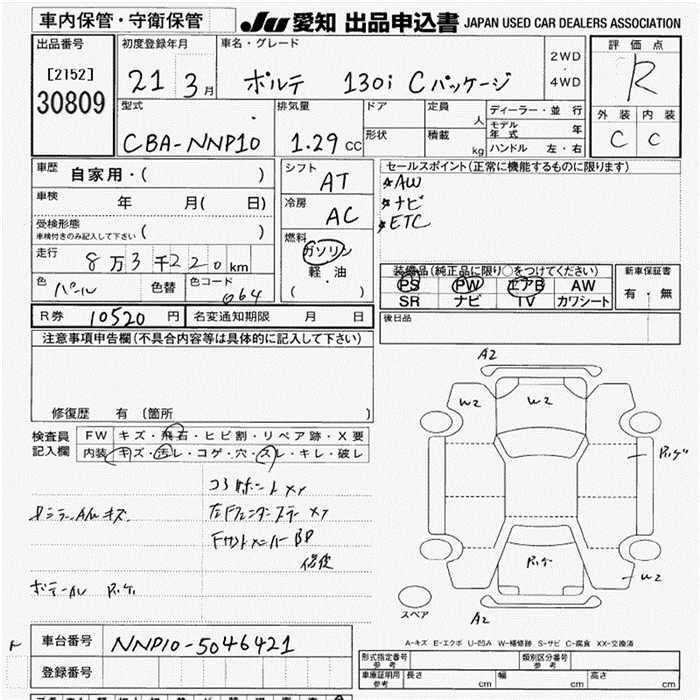 車内保管・守衛保管
JU 愛知 出品申込書 JAPAN USED CAR DEALERS ASSOCIATION
出品番号
[2152]
30809
初度登録年月
21 3月
車名・グレード
ポルテ 130i Cパッケージ
2WD
・
4WD
評価点
R
外装 内装
C C
型式
CBA-NNP10
排気量
1.29 CC
ドア
形状
定員
人
積載
kg
ディーラー・並行
モデル年式 年
ハンドル 左・右
車歴
自家用・( )
車検
年 月( 日)
受検形態
車検付きのみ記入して下さい ( )
走行
8万3千220km
色
パール
色替
色コード
064
シフト
AT
冷房
AC
燃料
ガソリン
軽油
( )
セールスポイント(正常に機能するものに限ります)
☆AW
☆ナビ
☆ETC
装備品(純正品に限り○をつけてください)
PS PW エアB AW
SR ナビ TV カワシート
新車保証書
有・無
R券 10520 円
名変通知期限 月 日
後日品
注意事項申告欄(不具合内容等は具体的に記入して下さい)
修復歴 有 (箇所 )
検査員
記入欄
FW キズ・飛石・ヒビ割・リペア跡・X要
内装 キズ・汚レ・コゲ・穴・スレ・キレ・破レ
コアサポートXX
キズ
XX
BP
A2
W2
W2
W2
A2
スペア
A-キズ E-エクボ U-凹み W-補修跡 S-サビ C-腐食 XX-交換済
車台番号
NNP10-5046421
登録番号
形式指定番号
参考
類別区分番号
参考
車庫証明用
参考
長さ cm
幅 cm
高さ cm